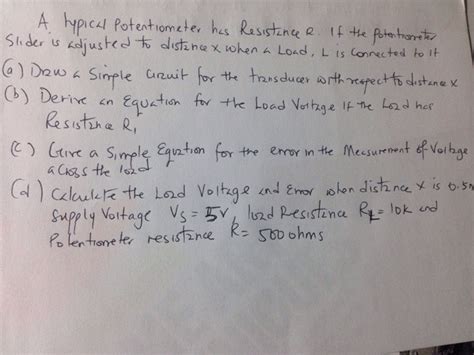 A typical Potentiometer has Resistance R. If the Potentiometer
Slider is adjusted to distance x when a Load, L is Connected to it
(a) Draw a Simple Circuit for the transducer with respect to distance x
(b) Derive an Equation for the Load Voltage If the Load has
Resistance R,
(c) Give a Simple Equation for the error in the Measurement of Voltage
across the load
(d) Calculate the Load Voltage and Error when distance x is 0.5m
Supply Voltage Vs = 5V, load Resistance RL = 10k and
Potentiometer resistance R = 500 ohms